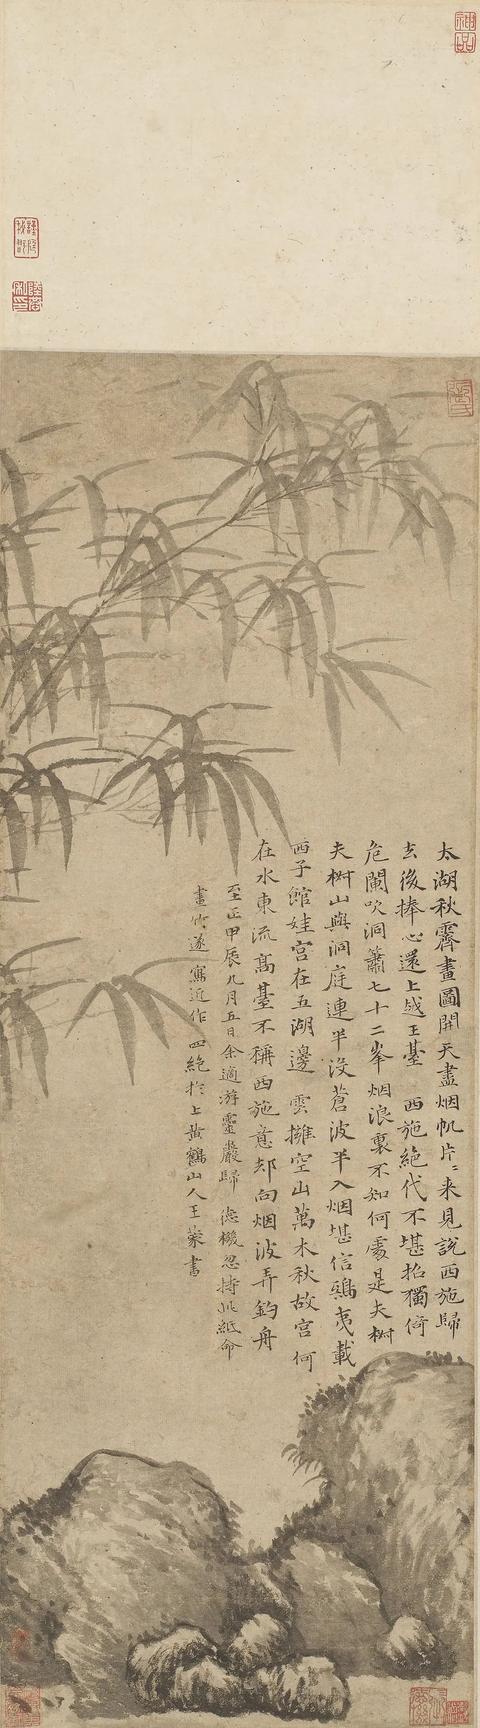 神品
太湖秋霽畫圖開天盡烟帆片〻来見説西施歸
去後捧心還上越王臺　西施絶代不堪招獨倚
危闌吹洞簫七十二峯烟浪裏不知何處是夫椒
夫椒山與洞庭連半沒蒼波半入烟堪信鴟夷載
西子館娃宫在五湖邊　雲擁空山萬木秋故宫何
在水東流高臺不稱西施意却向烟波弄釣舟
至正甲辰九月五日余適游靈巖歸　德機忽持此紙命
畫竹遂寫近作四絶扵上黄鶴山人王蒙書